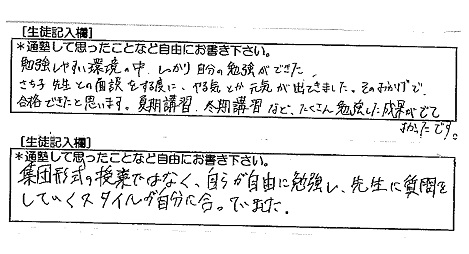 [生徒記入欄]
*通塾して思ったことなど自由にお書き下さい。
勉強しやすい環境の中、しっかり自分の勉強ができた。
さち子先生との面談をする度に、やる気とか元気が出てきました。そのおかげで、
合格できたと思います。夏期講習、冬期講習など、たくさん勉強した成果がでて
よかったです。
[生徒記入欄]
*通塾して思ったことなど自由にお書き下さい。
集団形式の授業ではなく、自らが自由に勉強し、先生に質問を
していくスタイルが自分に合っていました。